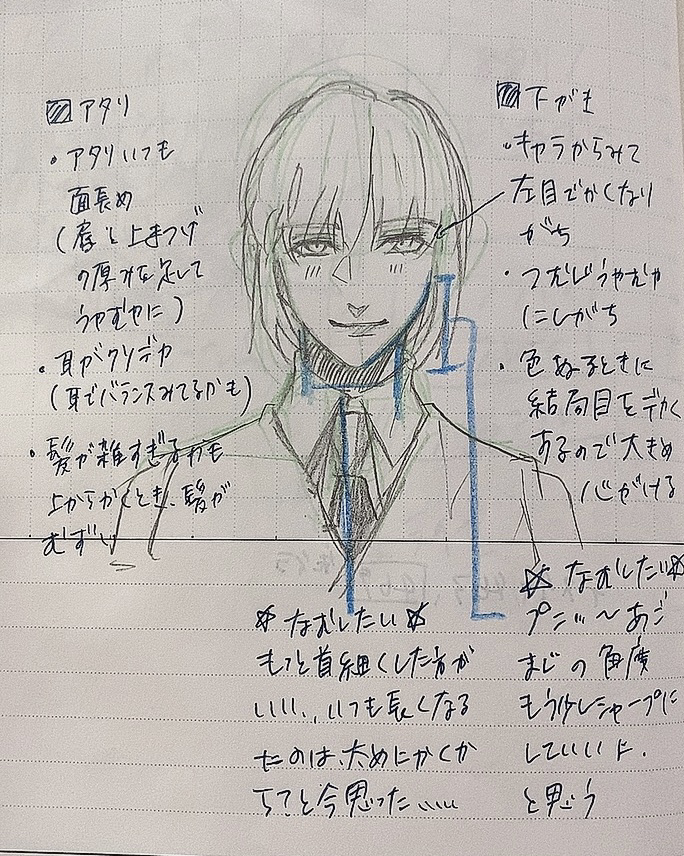 ▨アタリ
・アタリいつも
面長め
(眉と上まつげ
の厚みを足して
うやむやに)
・耳がクソデカ
(耳でバランスみてるかも)
・髪が雑すぎるかも
上からかくとき、髪が
むずい
▨下がき
・キャラからみて
左目でかくなり
がち
・つむじうやむや
にしがち
・色ぬるときに
結局目をデカく
するので大きめ
心がける
✡なおしたい✡
もっと首細くした方が
いい、、いつも長くなる
たのは、太めにかくか
らでと今思った、、、、
✡なおしたい✡
〜あご
までの角度
もう少しシャープに
していいに。
と思う